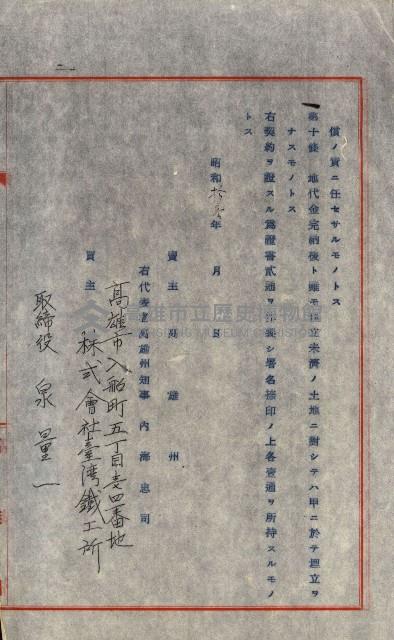 償ノ責ニ任セサルモノトス
第十條 地代金完納後ト雖モ埋立未濟ノ土地ニ對シテハ甲ニ於テ埋立ヲ
ナスモノトス
右契約ヲ證スル爲證書貳通ヲ作製シ署名捺印ノ上各壹通ヲ所持スルモノ
トス
昭和拾 年 月 日
賣主 高雄州
右代表者高雄州知事 內海忠司
高雄市入船町五丁目壹四番地
買主 株式會社臺灣鐵工所
取締役 泉量一
高雄市立歷史博物館